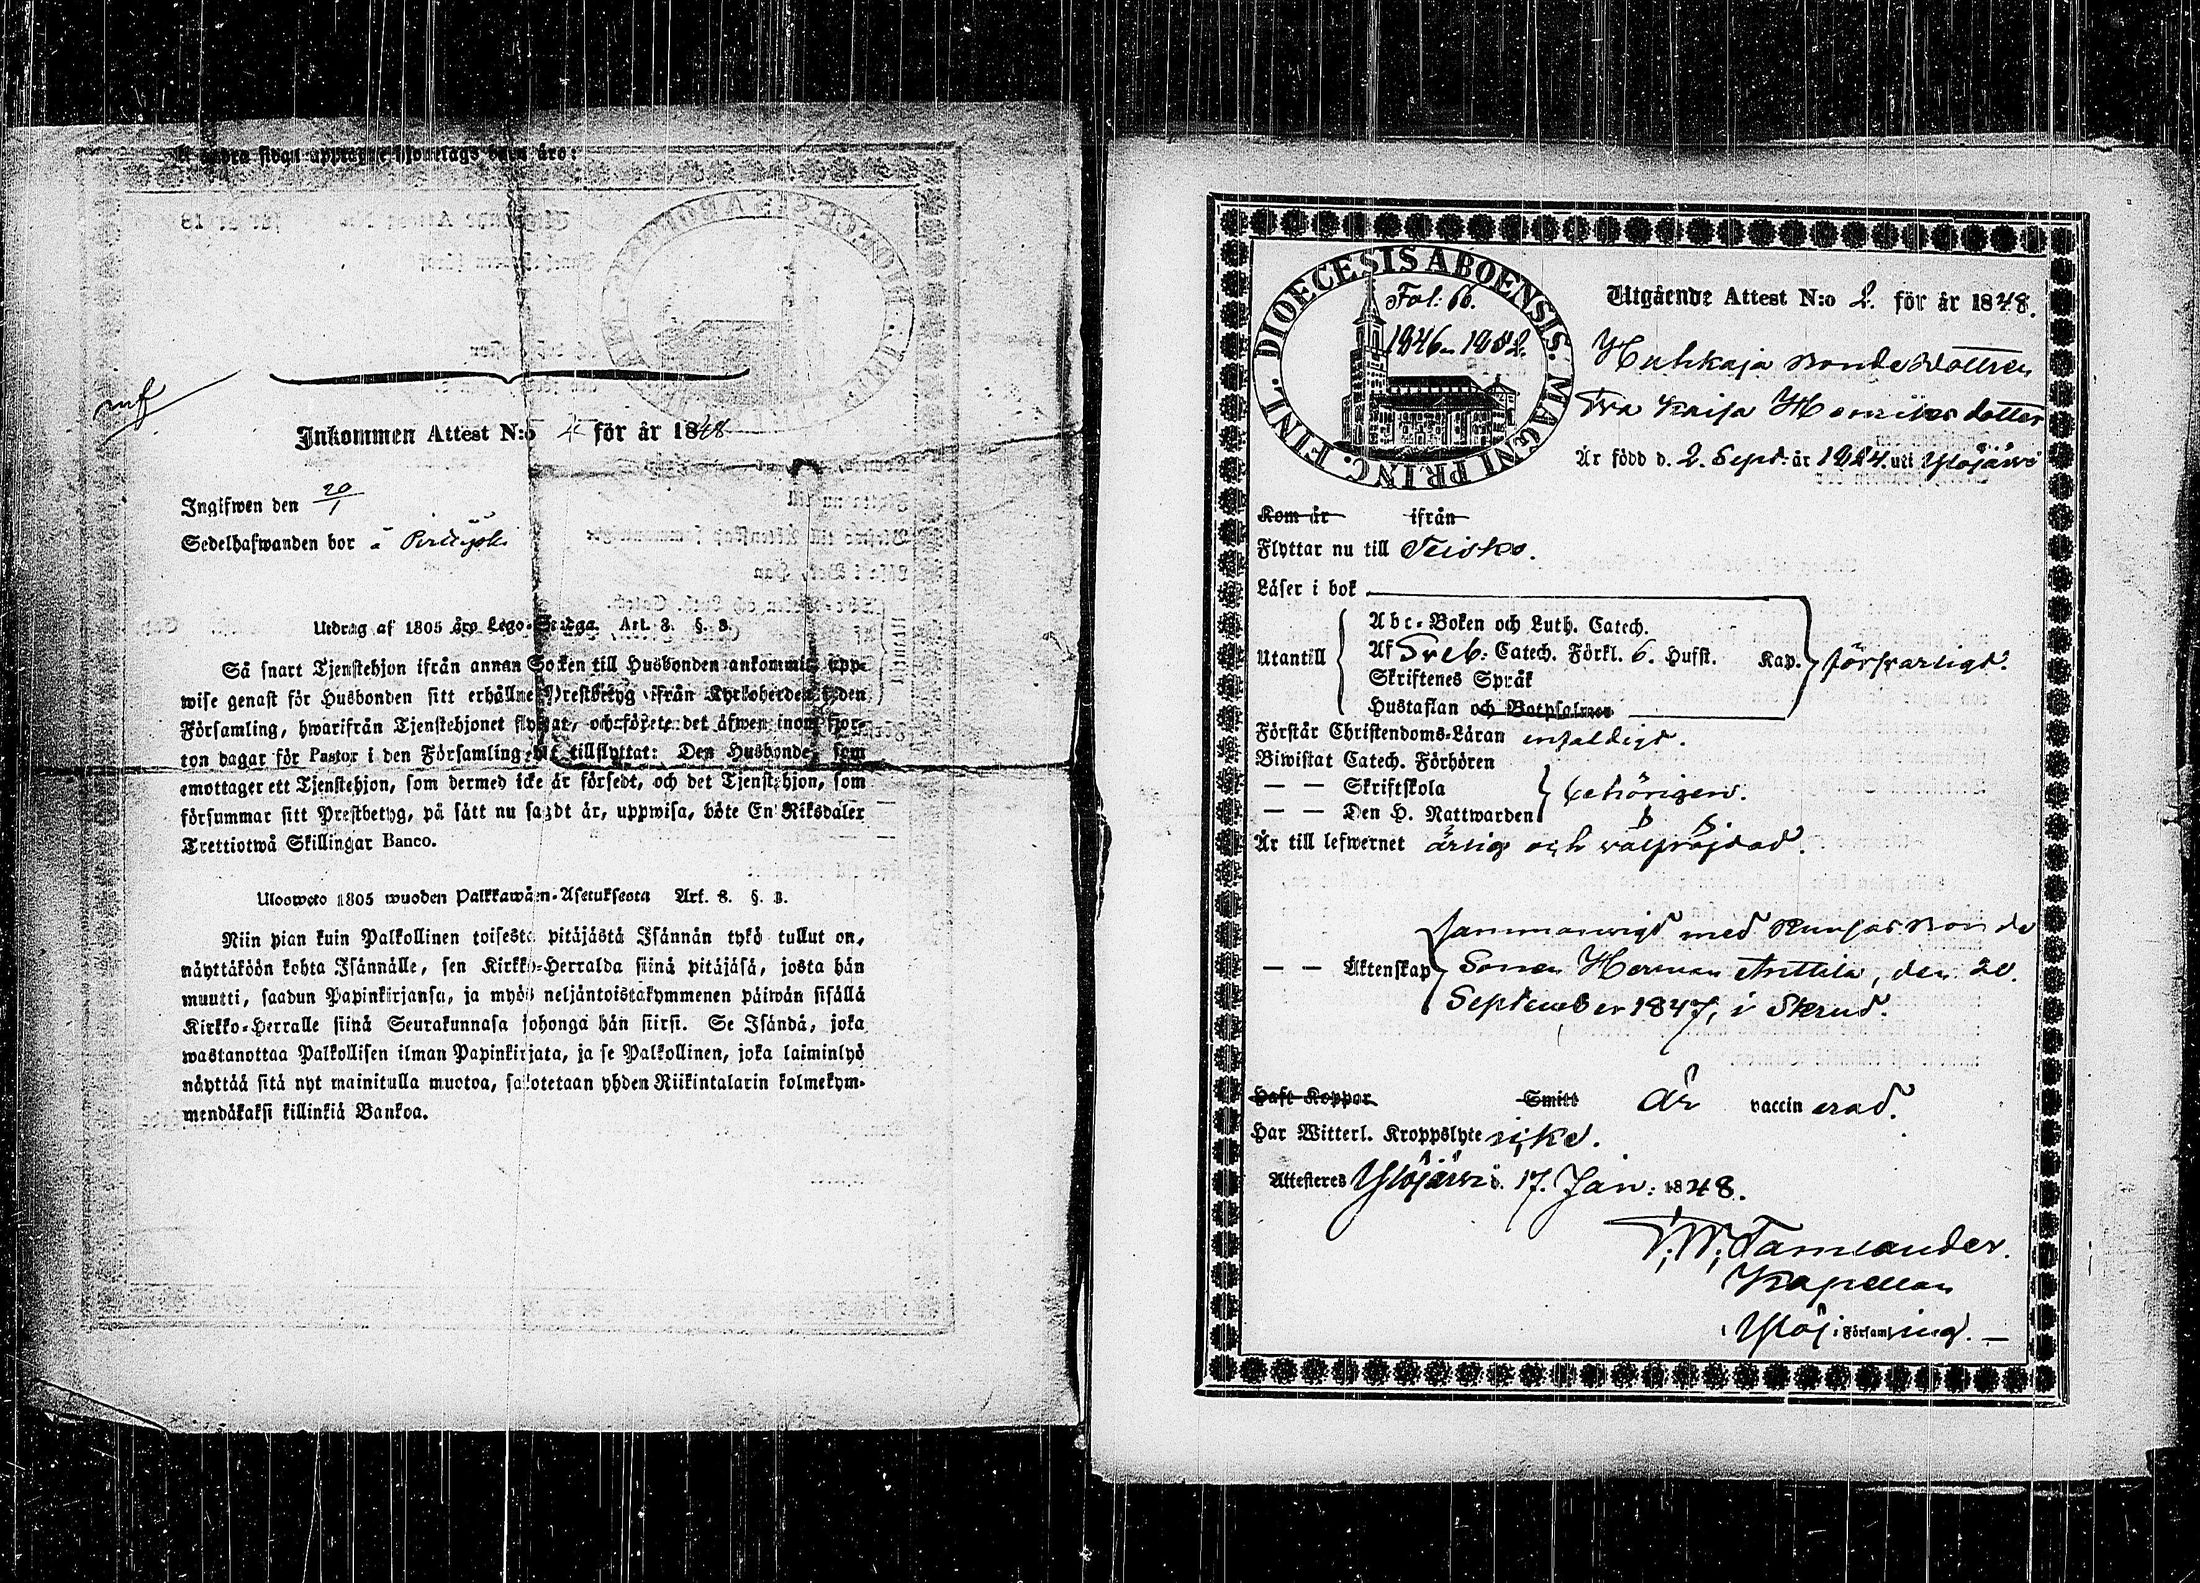 å andra sidan upptagne Hjonelags barn äro:
Inkommen Attest N:o 4 för år 1848
Ingifwen den 20/1
Sedelhafwanden bor å
Utdrag af 1805 års Lego-Stadga. Art. 3. §. 3.
Så snart Tjenstehjon ifrån annan Socken till Husbonden ankommit, upp-
wise genast för Husbonden sitt erhållne Prestbetyg ifrån Kyrkoherden i den
Församling, hwarifrån Tjenstehjonet flyttat, och förete det äfwen inom fjor-
ton dagar för Pastor i den Församling, dit tillflyttat: Den Husbonde, som
emottager ett Tjenstehjon, som dermed icke är försedt, och det Tjenstehjon, som
försummar sitt Prestbetyg, på sätt nu sagdt är, uppwisa, böte En Riksdaler
Trettiotwå Skillingar Banco.
Uloswето 1805 wuoden Palkkawäen-Asetuksesta Art. 3. §. 3.
Niin pian kuin Palkollinen toisesta pitäjästä Isännän tykö tullut on,
näyttäköön kohta Isännälle, sen Kirkko-Herralda siinä pitäjäsä, josta hän
muutti, saadun Papinkirjansa, ja myös neljäntoistakymmenen päiwän sisällä
Kirkko-Herralle siinä Seurakunnasa johonga hän siirsi. Se Isändä, joka
wastanottaa Palkollisen ilman Papinkirjata, ja se Palkollinen, joka laiminlyö
näyttää sitä nyt mainitulla muotoa, sakotetaan yhden Riikintalarin kolmekym-
mendäkaksi killinkiä Bankoa.
DIOECESIS ABOENSIS. MAGNI PRINC. FINL.
Fol: 66.
1846-1852.
Utgående Attest N:o 2. för år 1848.
Huhkaja Bonde Dottren
Eva Kaisa Henriksdotter
Är född d. 2. Sept: år 1824. uti Ylöjärvi
Kom år ifrån
Flyttar nu till Teisko.
Läser i bok
Abc-Boken och Luth. Catech.
Utantill Af Sveb: Catech. Förkl. 6. Hufst. Kap. försvarligt.
Skriftenes Språk
Hustaflan och Botpsalmer
Förstår Christendoms-Läran enfaldigt.
Biwistat Catech. Förhören
— — Skriftskola behörigen.
— — Den H. Nattwarden
Är till lefwernet ärlig och välfräjdad.
Sammanvigd med Runsas Bonde
— — Äktenskap Sonen Herman Anttila, den 20.
September 1847, i Skrud.
Haft Koppor Smitt är vaccinerad.
Har Witterl. Kroppslyte icke.
Attesteres Ylöjärvi d. 17. Jan: 1848.
Tamlander.
Kapellan
i Ylöj: Församling. —